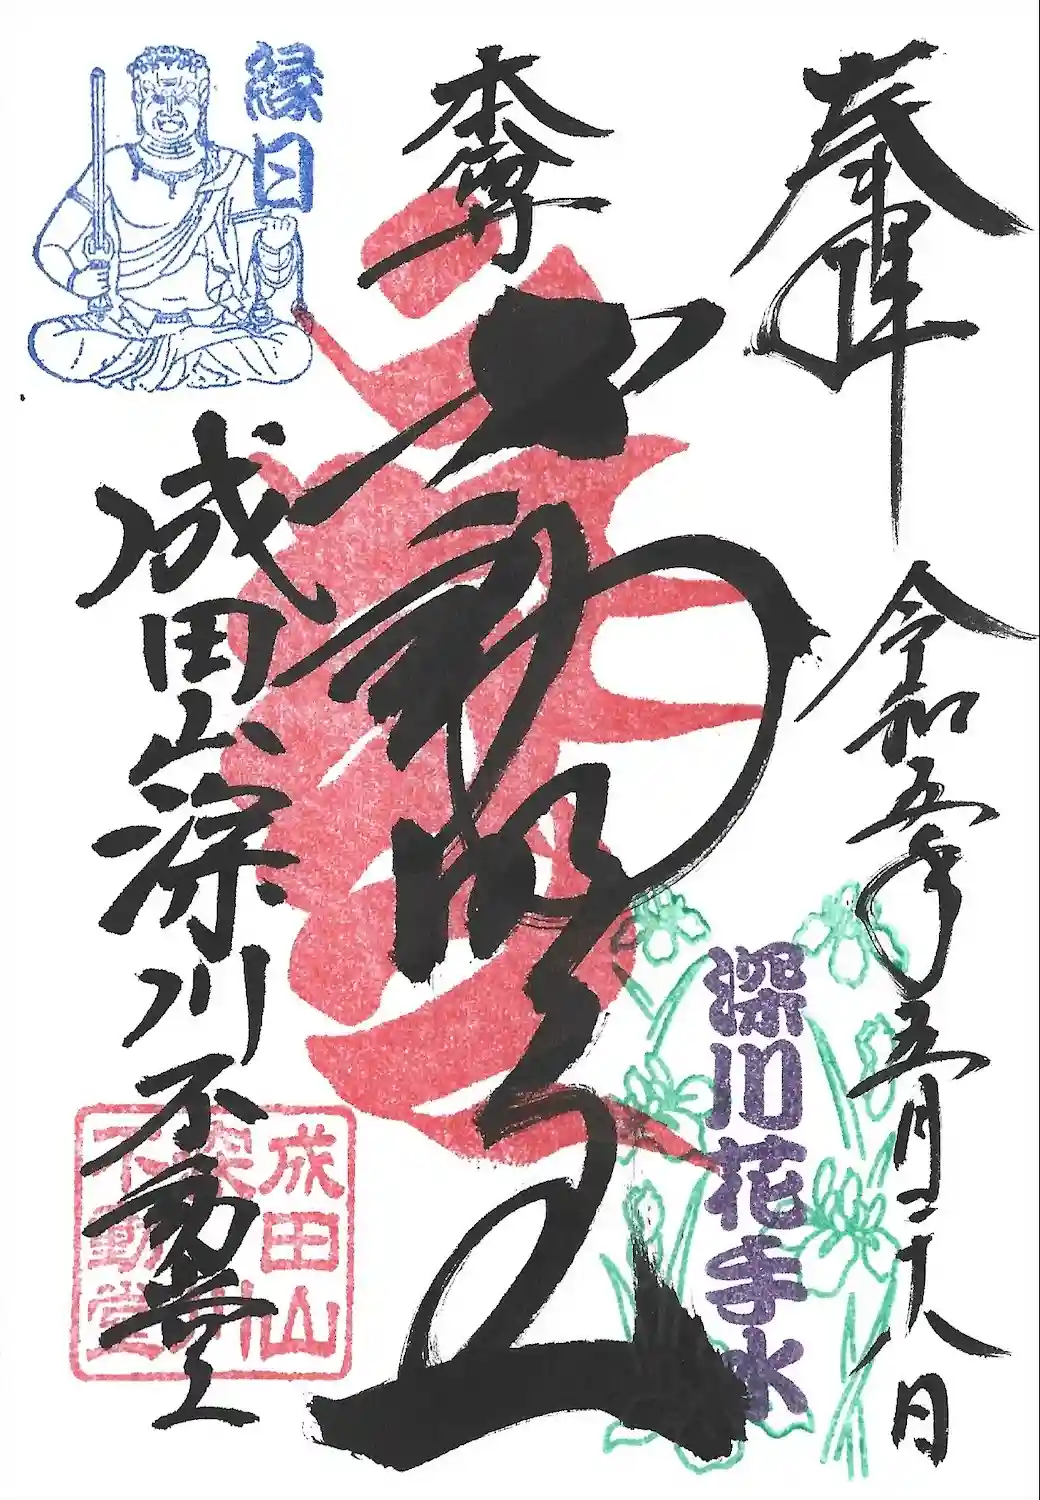 奉拝
令和五年五月二十八日
深川花手水
本尊
不動明王
縁日
成田山深川不動堂
成田山
深川
不動堂